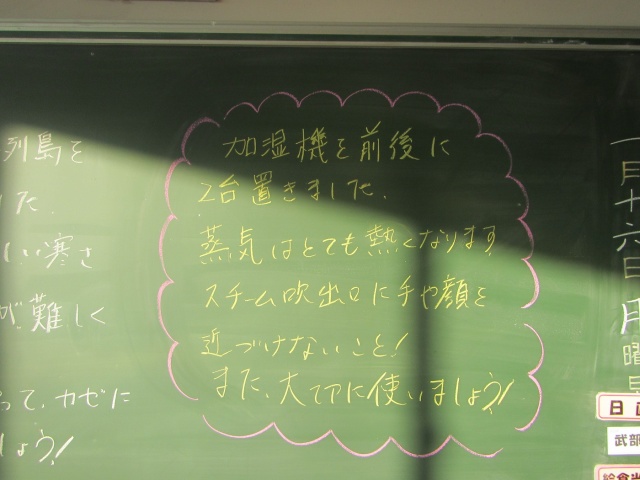 一月十六日月曜日
加湿機を前後に
2台置きました.
蒸気はとても熱くなります
スチーム吹出口に手や顔を
近づけないこと!
また、大切に使いましょう!
列島を
た.
しい寒さ
が難しく
って、カゼに
しょう!
日直
武部
給食当